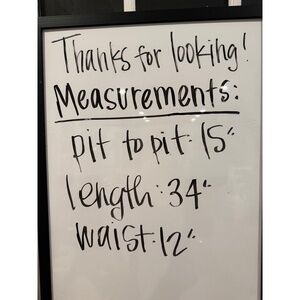 Thanks for looking!
Measurements:
pit to pit: 15"
length: 34"
waist: 12"